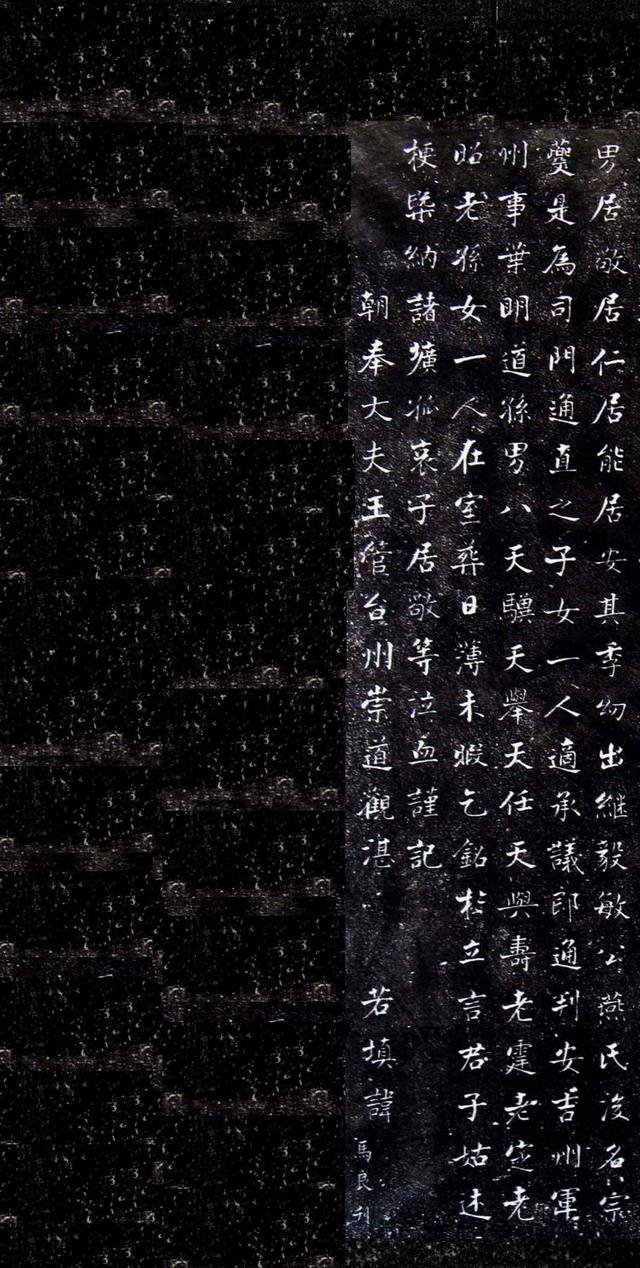 男居敬居仁居能居安其季幼出継毅敏公燕氏後名宗
夔是為司門通直之子女一人適承議郎通判安吉州軍
州事葉明道孫男八天驥天舉天任天與壽老霆老定老
昭老孫女一人在室葬日薄未暇乞銘於立言君子姑述
梗槩納諸壙孤哀子居敬等泣血謹記
朝奉大夫主管台州崇道觀湛若填諱
馬良刊